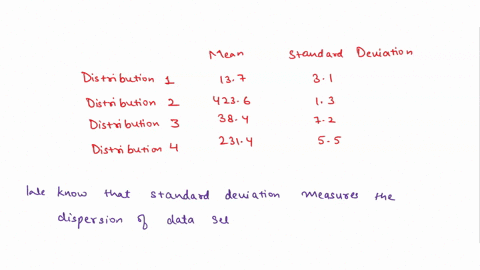 Mean Standard Deviation
Distribution 1 13.7 3.1
Distribution 2 423.6 1.3
Distribution 3 38.4 7.2
Distribution 4 231.4 5.5
We know that standard deviation measures the
dispersion of data set